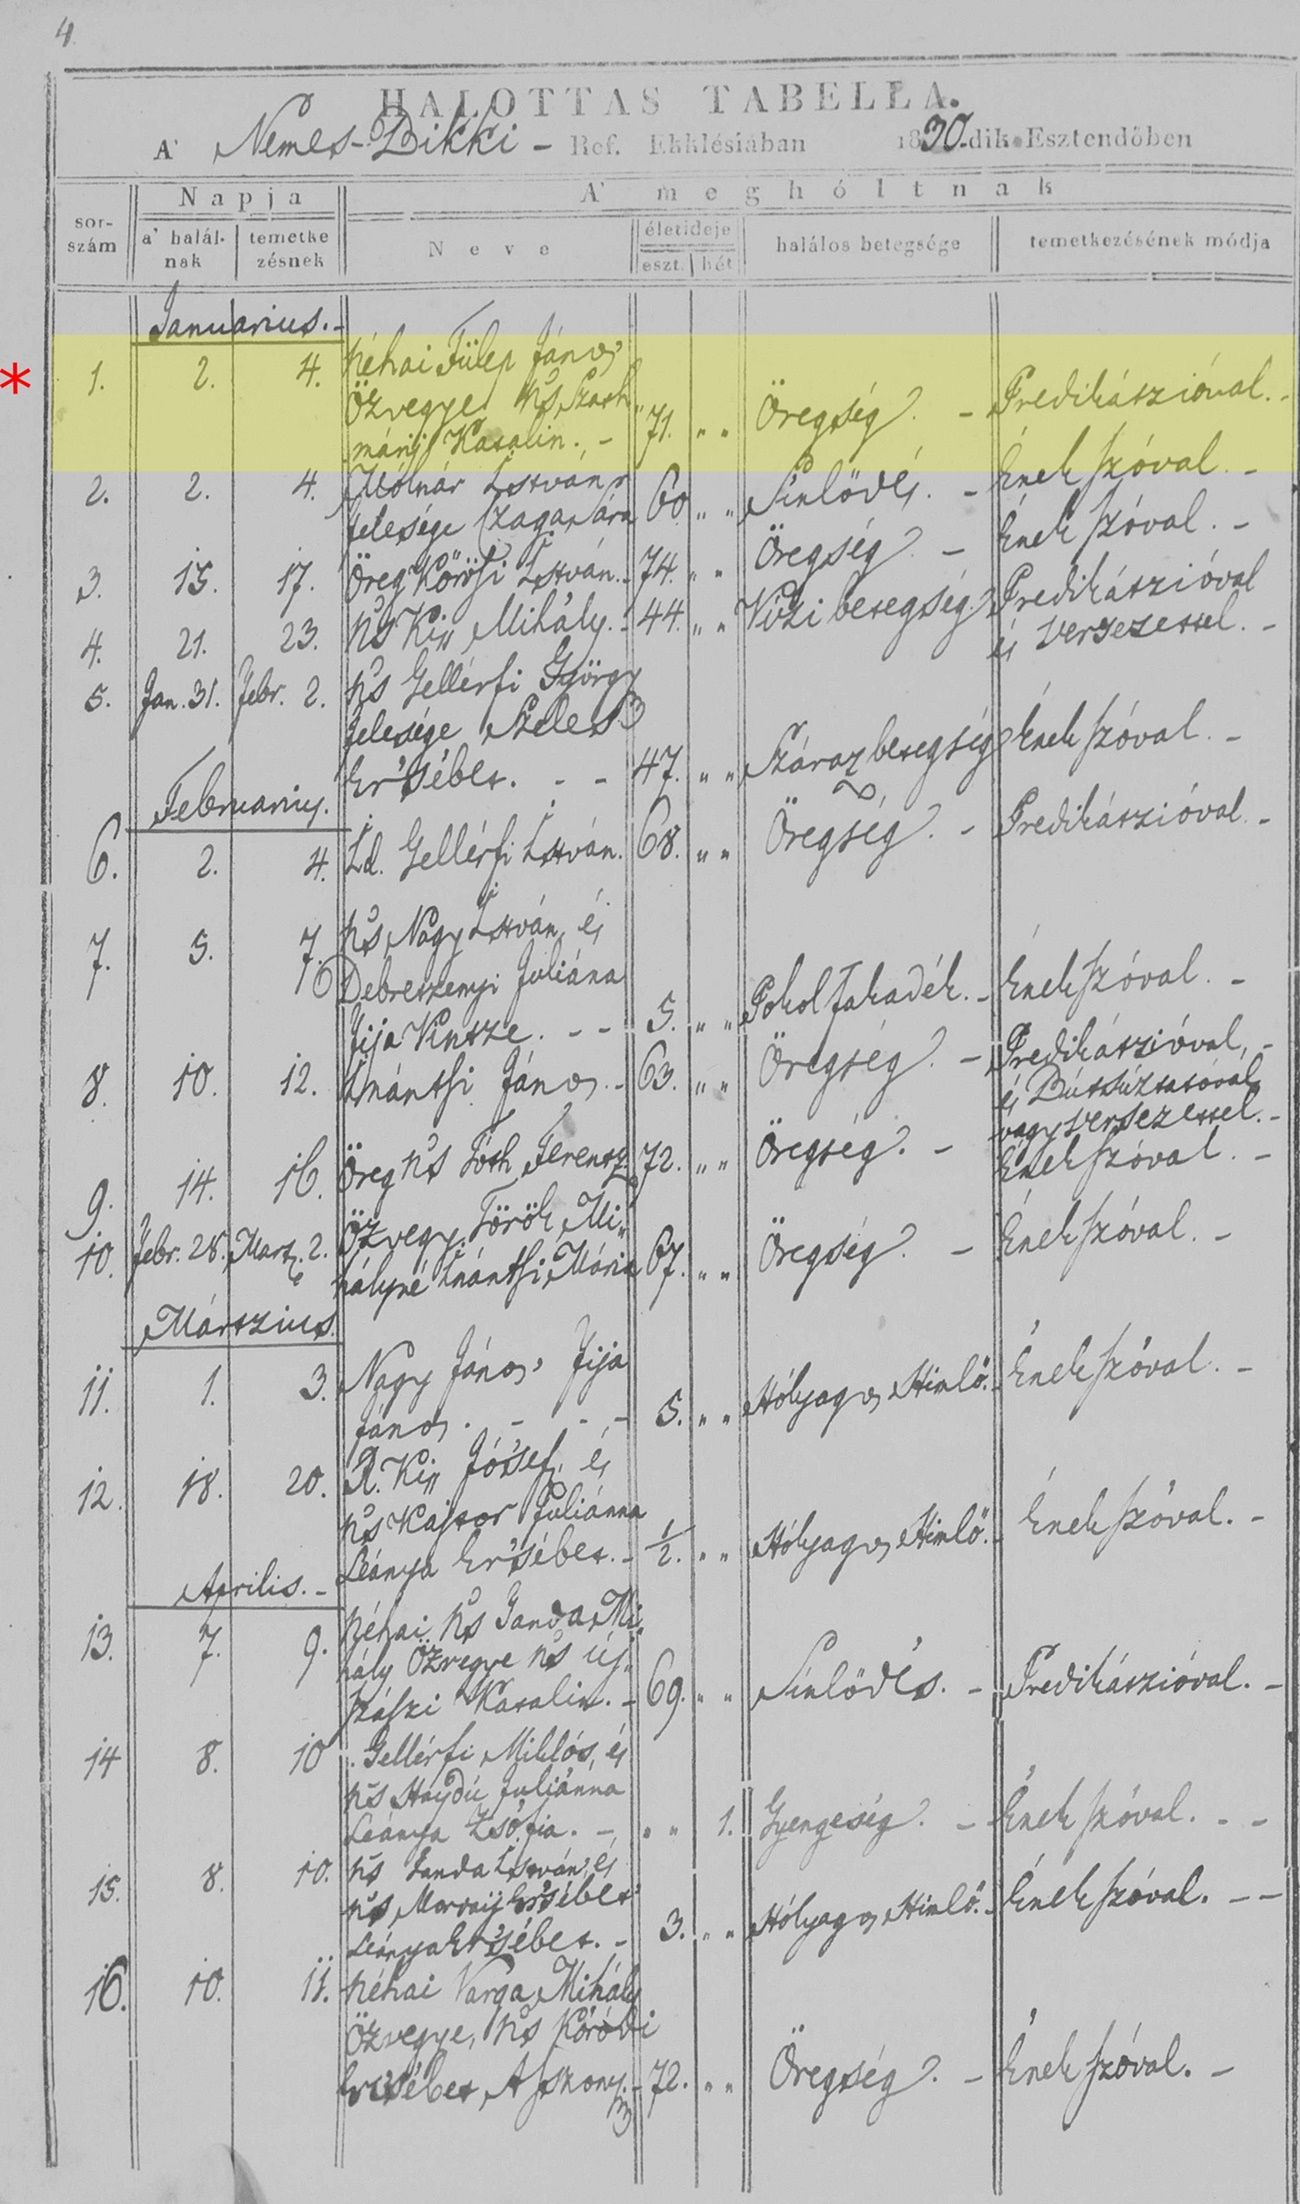 4.
HALOTTAS TABELLA.
A' Nemes-Dikki - Ref. Ekklésiában 1830.dik Esztendőben
sor-szám
Napja
a' halál-nak
temetkezésnek
A' meghóltnak
Neve
életideje
eszt. hét
halálos betegsége
temetkezésének módja
Januarius. -
1. 2. 4. Néhai Fülep János,
Özvegye Ns Szath"
márij Katalin. - 71. " " Öregség. - Predikátzióval. -
2. 2. 4. Mólnár István
felesége Czaga Sára 60 " " Sinlödés. - Ének szóval. -
3. 15. 17. Öreg Kőrösi István. - 74. " " Öregség. - Ének szóval. -
4. 21. 23. Ns Kiss Mihály. - 44. " " Vizi betegség Predikátzióval
és Versezettel. -
5. Jan. 31. Febr. 2. Ns Gellérfi György
felesége Szeles
Er'sébet. - - 47. " " Száraz betegség Ének szóval. -
Februarius.
6. 2. 4. Id. Gellérfi István. 68. " " Öregség. - Predikátzióval. -
7. 5. 7. Ns Nagy István és
Debretzenyi Juliána
fija Vintze. - - 5. " " Pokol fakadék. - Ének szóval. -
8. 10. 12. Imántsi János. - 63. " " Öregség. - Predikátzióval, -
és Bútsúztatóval
vagy Versezettel. -
9. 14. 16. Öreg Ns Tóth Ferentz 72. " " Öregség. - Ének szóval. -
10. Febr. 28. Mart. 2. Özvegy Török Mi"
hályné Imántsi Mária 67. " " Öregség. - Ének szóval. -
Mártzius.
11. 1. 3. Nagy János, fija
János. - - - 5. " " Hólyagos Himlő. - Ének szóval. -
12. 18. 20. R. Kiss Jó'sef, és
Ns Kajtor Juliánna
Leánya Er'sébet. - 1/2. " " Hólyagos Himlő. - Ének szóval. -
Aprilis. -
13. 7. 9. Néhai Ns Janda Mi"
hály Özvegye Ns Új"
Katalin. - 69. " " Sinlödés. - Predikátzióval. -
14 8. 10 Gellérfi Miklós, és
Ns Hajdú Juliánna
Leánya Zsófia. - " " 1. Gyengeség. - Ének szóval. - -
15. 8. 10. Ns Janda István, és
Ns Er'sébet
Leánya Er'sébet. - 3. " " Hólyagos Himlő. - Ének szóval. - -
16. 10. 11. Néhai Varga Mihály
Özvegye, Ns Kóródi
Er'sébet Asszony. - 72. " " Öregség. - Ének szóval. -